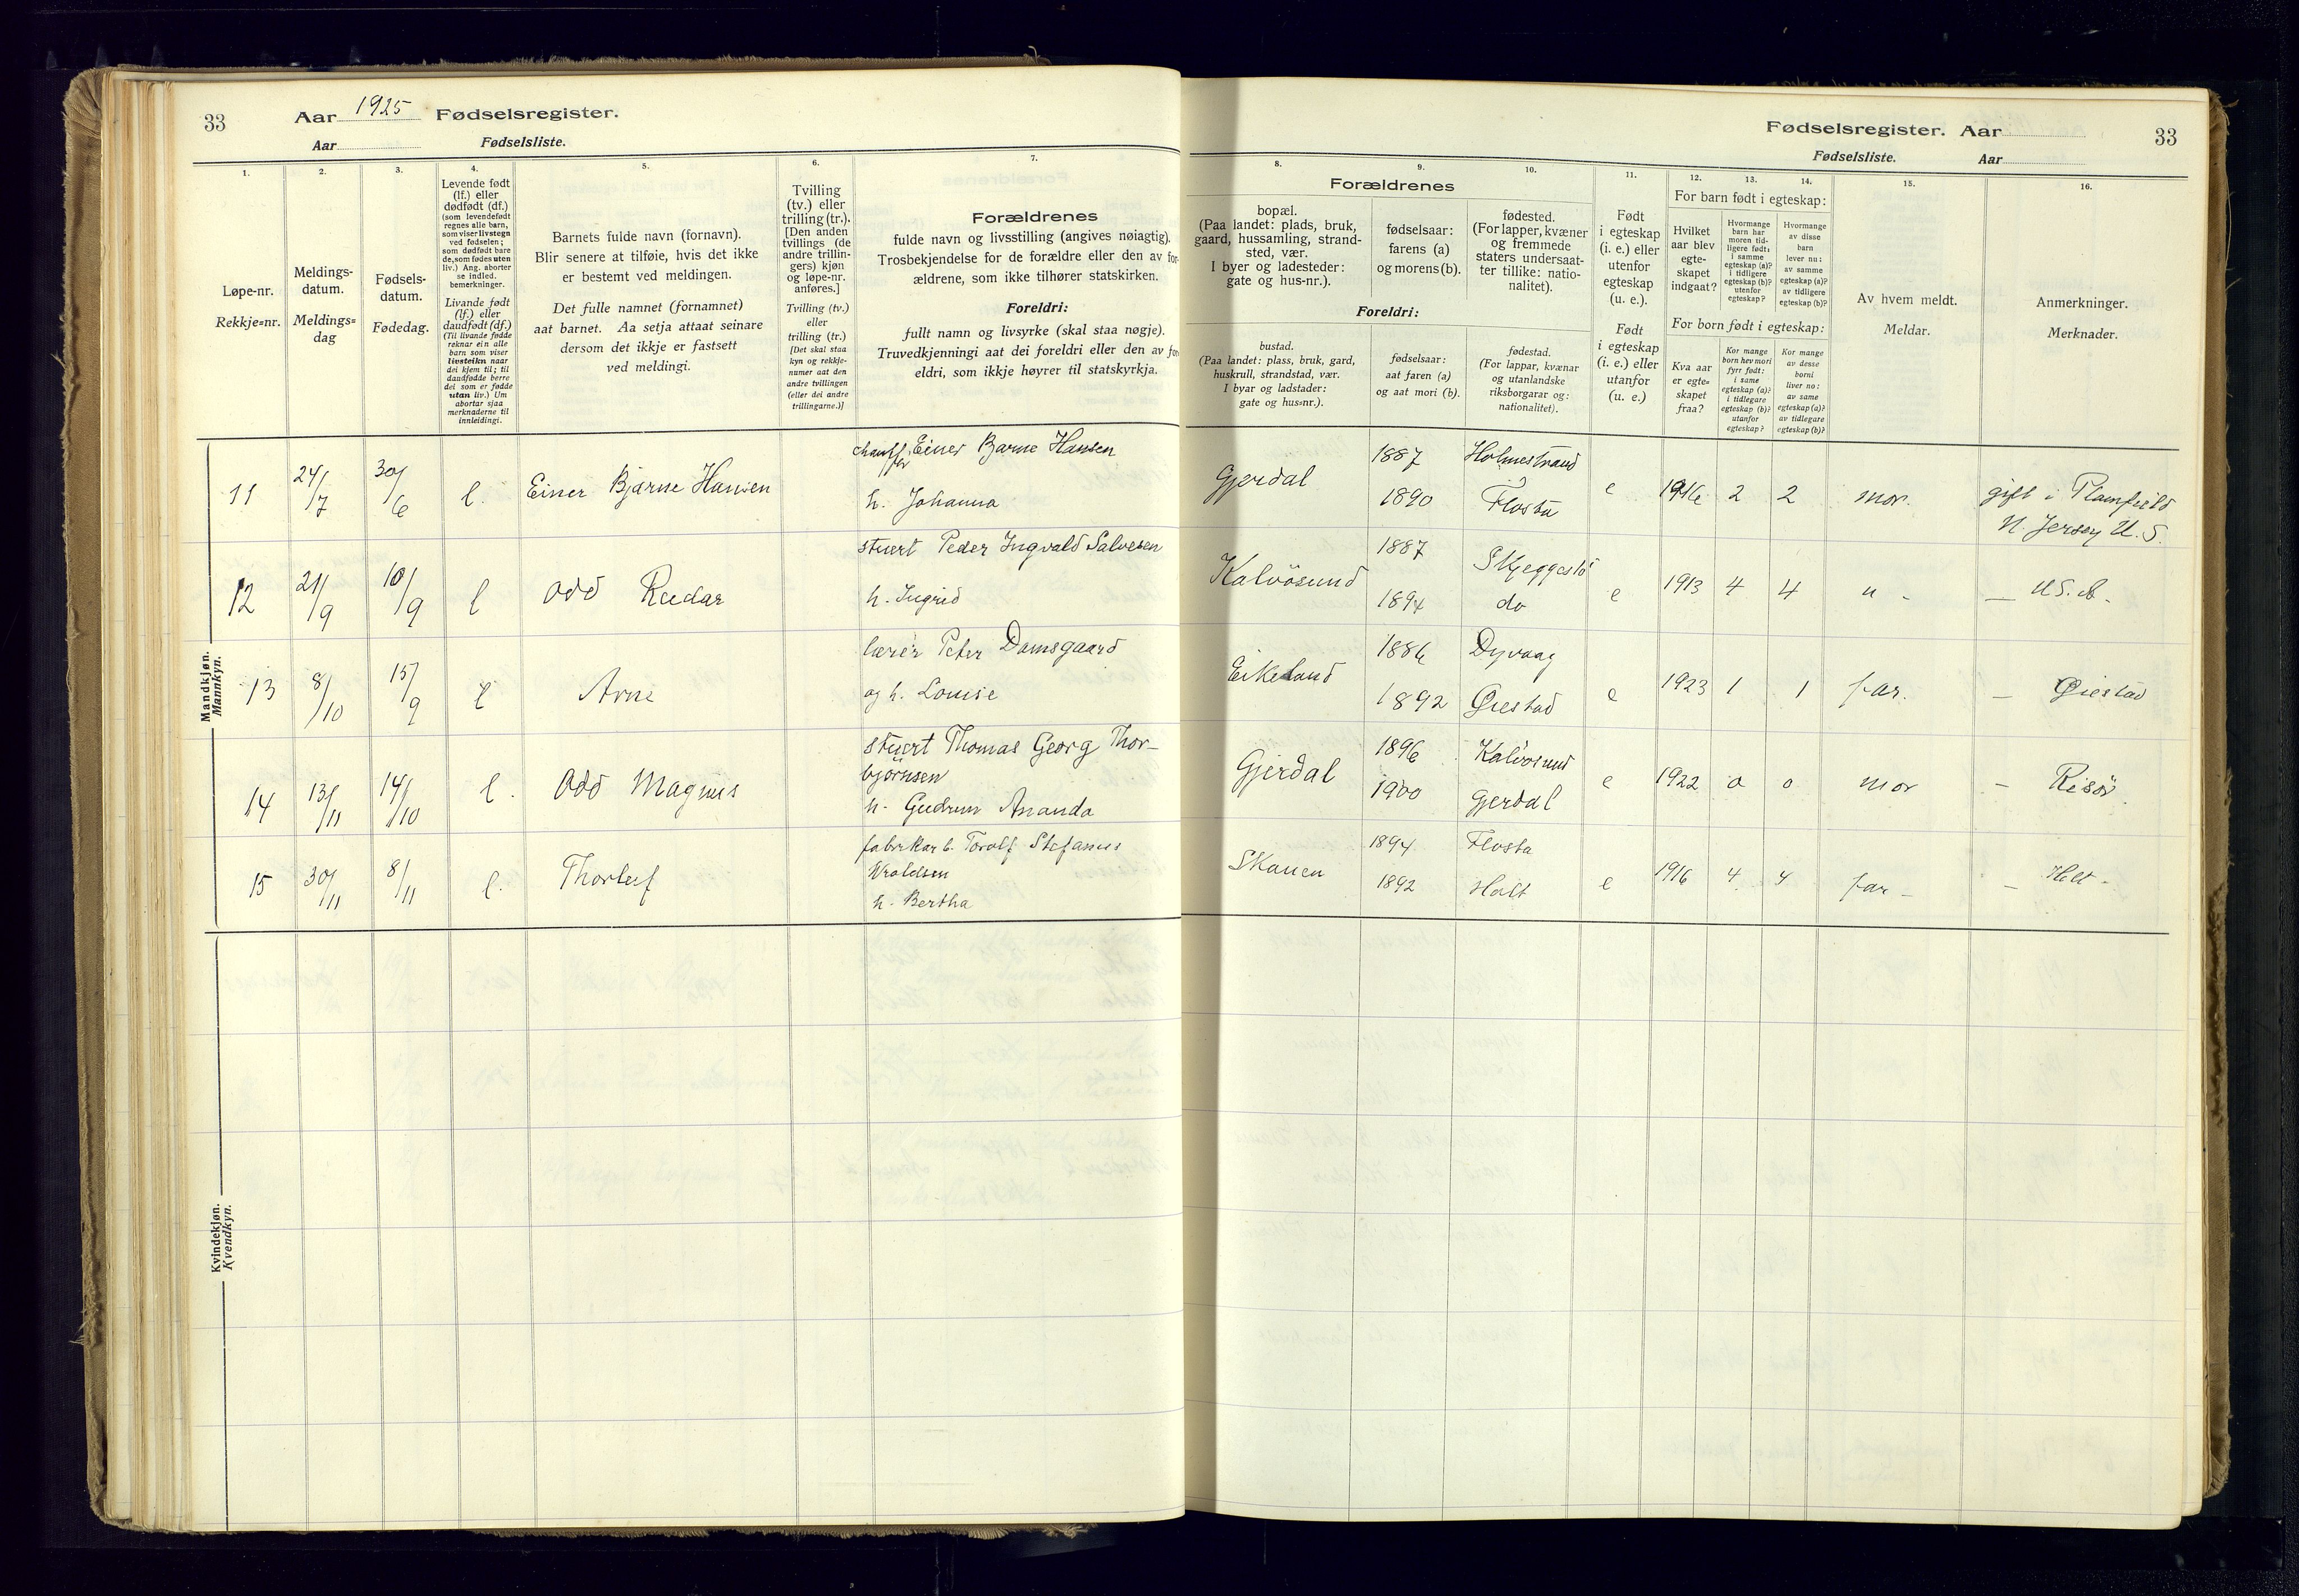 33 Aar 1925 Fødselsregister.
Aar Fødselsliste.
1.
Løpe-nr.
Rekkje=nr.
2.
Meldings-
datum.
Meldings=
dag
3.
Fødsels-
datum.
Fødedag.
4.
Levende født
(lf.) eller
dødfødt (df.)
(som levendefødt
regnes alle barn,
som viser livstegn
ved fødselen;
som dødfødt bare
de, som fødes uten
liv.) Ang. aborter
se indled.
bemerkninger.
Livande født
(lf.) eller
daudfødt (df.)
(Til livande fødde
reknar ein alle
barn som viser
livsteikn naar
dei kjem til; til
daudfødde berre
dei som er fødde
utan liv.) Um
abortar sjaa
merknaderne til
innleidingi.
5.
Barnets fulde navn (fornavn).
Blir senere at tilføie, hvis det ikke
er bestemt ved meldingen.
Det fulle namnet (fornamnet)
aat barnet. Aa setja attaat seinare
dersom det ikkje er fastsett
ved meldingi.
6.
Tvilling
(tv.) eller
trilling (tr.).
[Den anden
tvillings (de
andre trillin-
gers) kjøn
og løpe-nr.
anføres.]
Tvilling (tv.)
eller
trilling (tr.)
[Det skal staa
kyn og rekkje-
numer aat den
andre tvillingen
(eller dei andre
trillingarne.)]
7.
Forældrenes
fulde navn og livsstilling (angives nøiagtig).
Trosbekjendelse for de forældre eller den av for-
ældrene, som ikke tilhører statskirken.
Foreldri:
fullt namn og livsyrke (skal staa nøgje).
Truvedkjenningi aat dei foreldri eller den av for
eldri, som ikkje høyrer til statskyrkja.
Mandkjøn.
Mannkyn.
11 24/7 30/6 l. Einer Bjarne Hansen
chauffør Einer Bjarne Hansen
h. Johanna
12 21/9 10/9 l Odd Reidar
stuert Peder Ingvald Salvesen
h. Ingrid
13 8/10 15/9 l Arne
lærer Peter Damsgaard
og h. Louise
14 13/11 14/10 l. Odd Magnus
stuert Thomas Georg Thor-
bjørnsen
h. Gudrun Ananda
15 30/11 8/11 l. Thorleif
fabrikarb. Torolf Stefanus
Wroldsen
h. Bertha
Kvindekjøn.
Kvendkyn.
Fødselsregister. Aar 33
Fødselsliste. Aar
8. 9. 10.
Forældrenes
bopæl.
(Paa landet: plads, bruk,
gaard, hussamling, strand-
sted, vær.
I byer og ladesteder:
gate og hus-nr.).
fødselsaar:
farens (a)
og morens (b).
fødested.
(For lapper, kvæner
og fremmede
staters undersaat-
ter tillike: natio-
nalitet).
Foreldri:
bustad.
(Paa landet: plass, bruk, gard,
huskrull, strandstad, vær.
I byar og ladstader:
gate og hus=nr.).
fødselsaar:
aat faren (a)
og aat mori (b).
fødestad.
(For lappar, kvænar
og utanlandske
riksborgarar og:
nationalitet).
11.
Født
i egteskap
(i. e.) eller
utenfor
egteskap
(u. e.).
Født
i egteskap
(i. e.) eller
utanfor
(u. e.)
12. 13. 14.
For barn født i egteskap:
Hvilket
aar blev
egte-
skapet
indgaat?
Hvormange
barn har
moren tid-
ligere født:
i samme
egteskap (a)?
i tidligere
egteskap (b)?
utenfor
egteskap?
Hvormange
av disse
barn
lever nu:
av samme
egteskap (a)?
av tidligere
egteskap (b)?
For born født i egteskap:
Kva aar
er egte=
skapet
fraa?
Kor mange
born hev mori
fyrr født:
i same
egteskap (a)?
i tidlegare
egteskap (b)?
utanfor
egteskap?
Kor mange
av desse
borni
liver no:
av same
egteskap (a)?
av tidlegare
egteskap (b)?
15.
Av hvem meldt.
Meldar.
16.
Anmerkninger.
Merknader.
Gjerdal 1887 Holmestrand
1890 Flosta
e 1916 2 2 mor. gift i Plainfield
N. Jersey U. S.
Kalvøsund 1887 Skjeggestø
1894 do
e 1913 4 4 u - — U S. A.
Eikeland 1886 Dyvaag
1892 Øiestad
e 1923 1 1 far. — Øiestad
Gjerdal 1896 Kalvøsund
1900 Gjerdal
e 1922 0 0 mor — Risør
Skauen 1894 Flosta
1892 Holt
e 1916 4 4 far — — Holt -